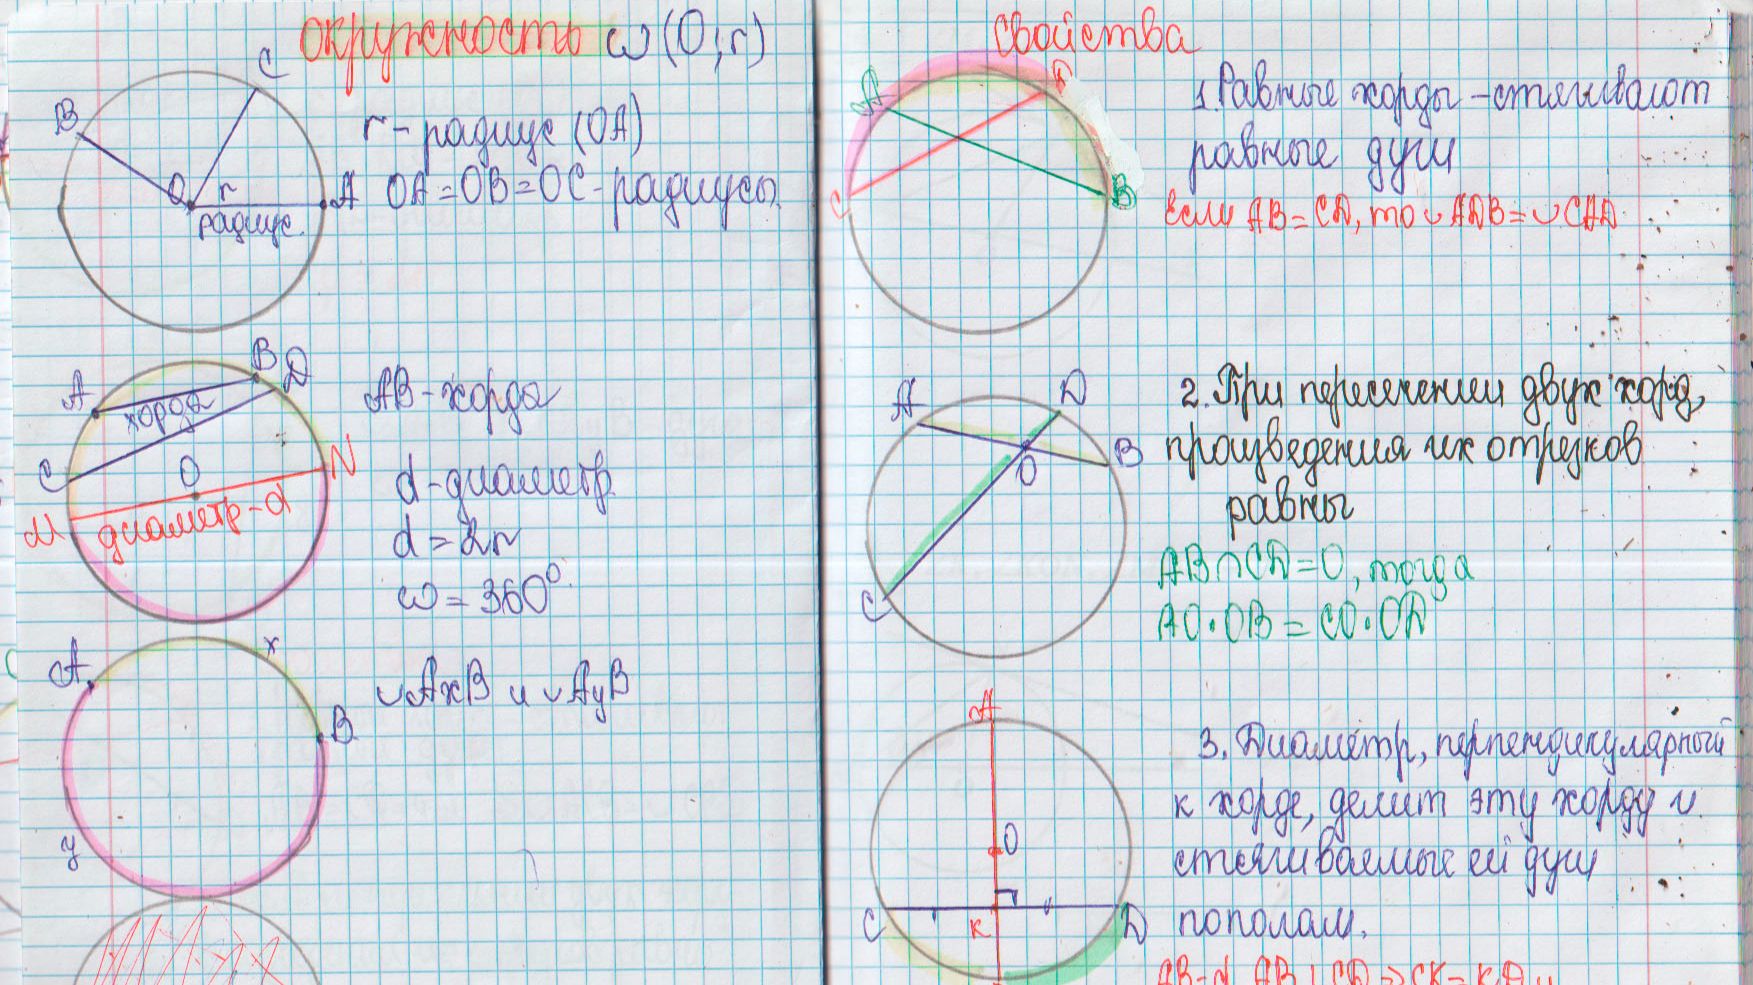 окружность ω (O; r)
C
B
O
r
A
радиус
r - радиус (OA)
OA = OB = OC - радиусы.
A
B
D
хорда
C
O
N
M
диаметр - d
AB - хорда
d - диаметр
d = 2r
ω = 360°
A
x
B
y
◡AxB и ◡AyB
Свойства
A
D
C
B
1. Равные хорды - стягивают
равные дуги
Если AB = CD, то ◡ADB = ◡CAD
A
D
O
B
C
2. При пересечении двух хорд,
произведения их отрезков
равны
AB ∩ CD = O, тогда
AO · OB = CO · OD
A
O
C
K
D
3. Диаметр, перпендикулярный
к хорде, делит эту хорду и
стягиваемые ей дуги
пополам.
AB - d, AB ⊥ CD => CK = KD и